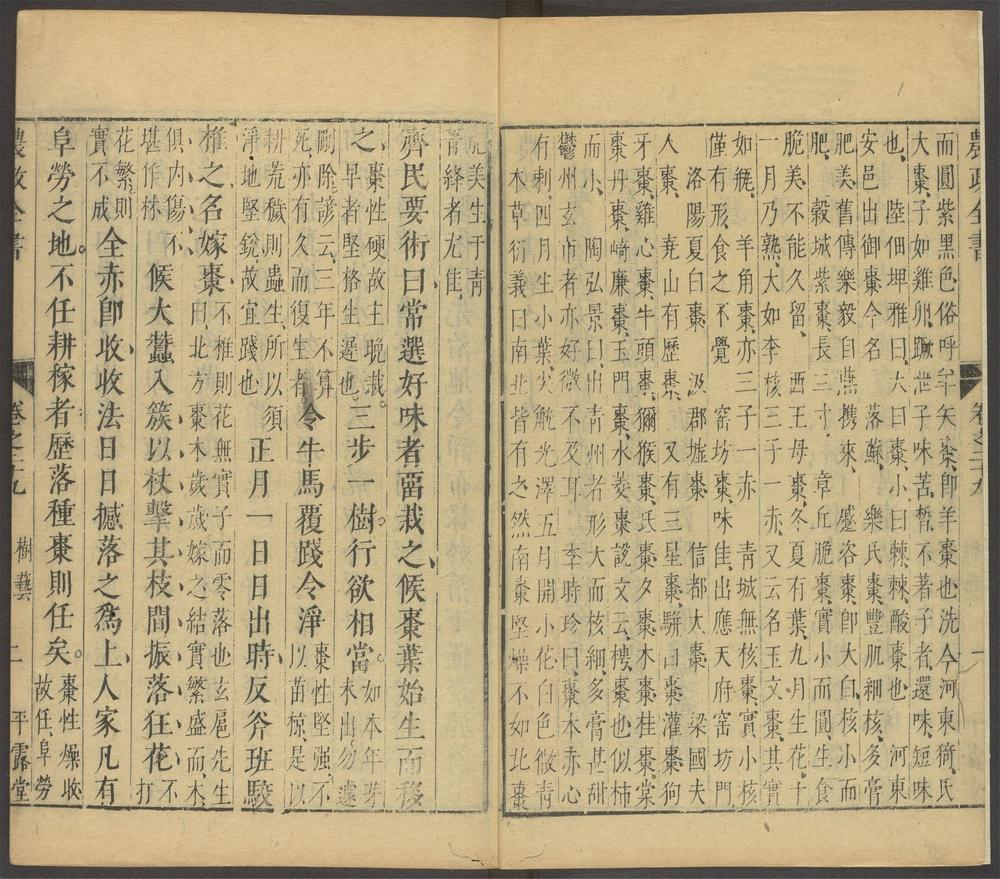 農政全書
卷之二十九
一
而圓紫黑色俗呼羊矢棗卽羊棗也洗今河東猗氏
大棗子如雞卵蹶泄子味苦晳不著子者還味短味
也陸佃埤雅曰大曰棗小曰棘棘酸棗也 河東
安邑出御棗今名 落蘇 樂氏棗豐肌細核多膏
肥美舊傳樂毅自燕携來 蹙洛棗卽大白核小而
肥 穀城紫棗長二寸 章丘脆棗實小而圓生食
脆美不能久留 西王母棗冬夏有葉九月生花十
一月乃熟大如李核三子一赤又云名玉文棗其實
如瓶 羊角棗亦三子一赤 青城無核棗實小核
僅有形食之不覺 窑坊棗味佳出應天府窑坊門
洛陽夏白棗 汲郡墟棗 信都大棗 梁國夫
人棗 堯山有歷棗 又有三星棗駢白棗灌棗狗
牙棗雞心棗牛頭棗獼猴棗氏棗夕棗木棗桂棗棠
棗丹棗崎廉棗玉門棗水菱棗說文云樗棗也似柿
而小 陶弘景曰出青州者形大而核細多膏甚甜
鬱州玄市者亦好微不及耳 李時珍曰棗本赤心
有刺四月生小葉尖觥光澤五月開小花白色微青
本草衍義曰南北皆有之然南棗堅燥不如北棗
肥美生于青
晉絳者尤佳
齊民要術曰常選好味者畱栽之候棗葉始生而移
之棗性硬故生晚栽
早者堅格生遲也三步一樹行欲相當如本年芽
未出勿遽
刪除諺云三年不算
死亦有久而復生者令牛馬覆踐令淨棗性堅强不
以苗椋是以
耕荒穢則蟲生所以須
淨地堅銳故宜踐也正月一日日出時反斧班駮
椎之名嫁棗不椎則花無實子而零落也玄扈先生
曰北方棗木歲歲嫁之結實繁盛而木
俱內傷不
堪作林候大蠶入簇以杖擊其枝間振落狂花不
打
花繁則
實不成全赤卽收收法日日撼落之爲上人家凡有
阜勞之地不任耕稼者歷落種棗則任矣棗性燥收
故任阜勞
農政全書
卷之二十九 樹藝
二
平露堂